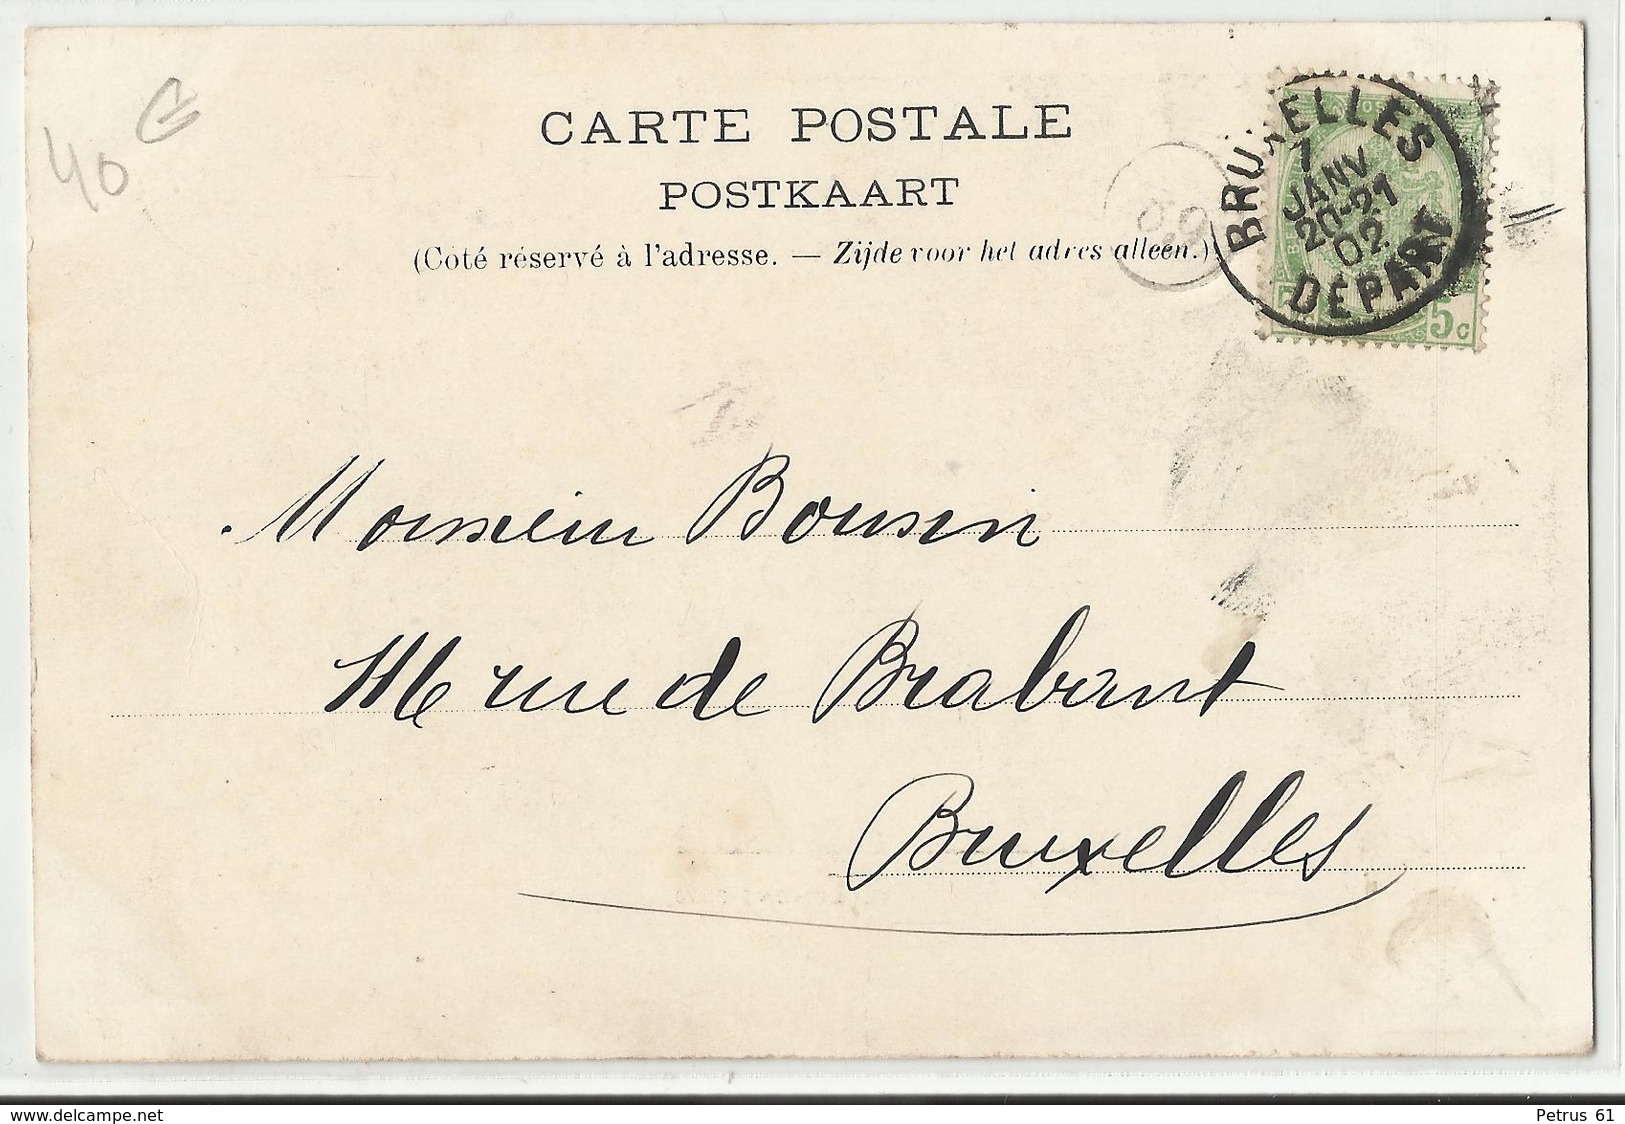 40 €
CARTE POSTALE
POSTKAART
(Coté réservé à l'adresse. — Zijde voor het adres alleen.)
BRUXELLES
7
JANV
20-21
02
DÉPART
5c
Monsieur Boussin
116 rue de Brabant
Bruxelles
www.delcampe.net
Petrus 61